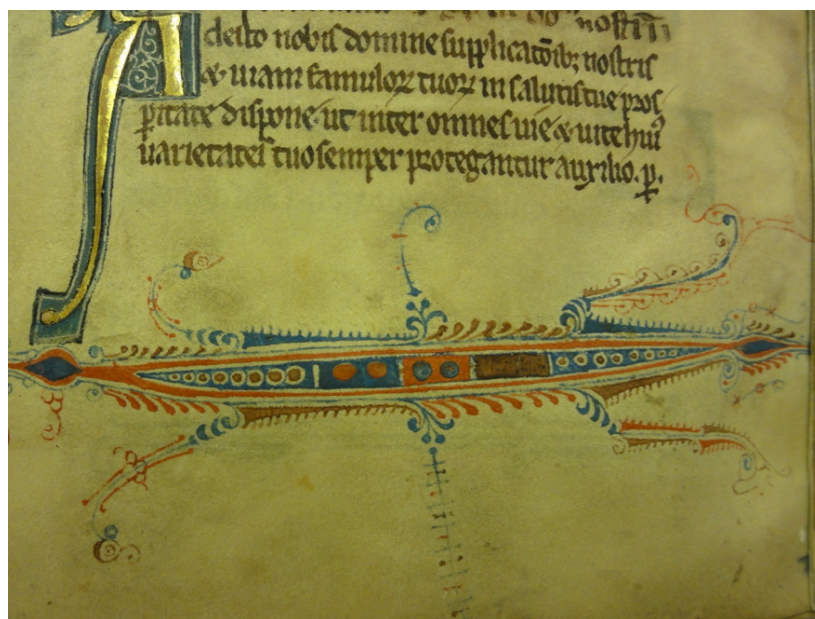 nostris
Adesto nobis domine supplicatōibꝫ nostris
& uiam famuloꝝ tuoꝝ in salutis tue pros
ꝑitate dispone · ut inter omnes uie & uite huiꝰ
uarietates tuo semper protegantur auxilio · ꝑ.